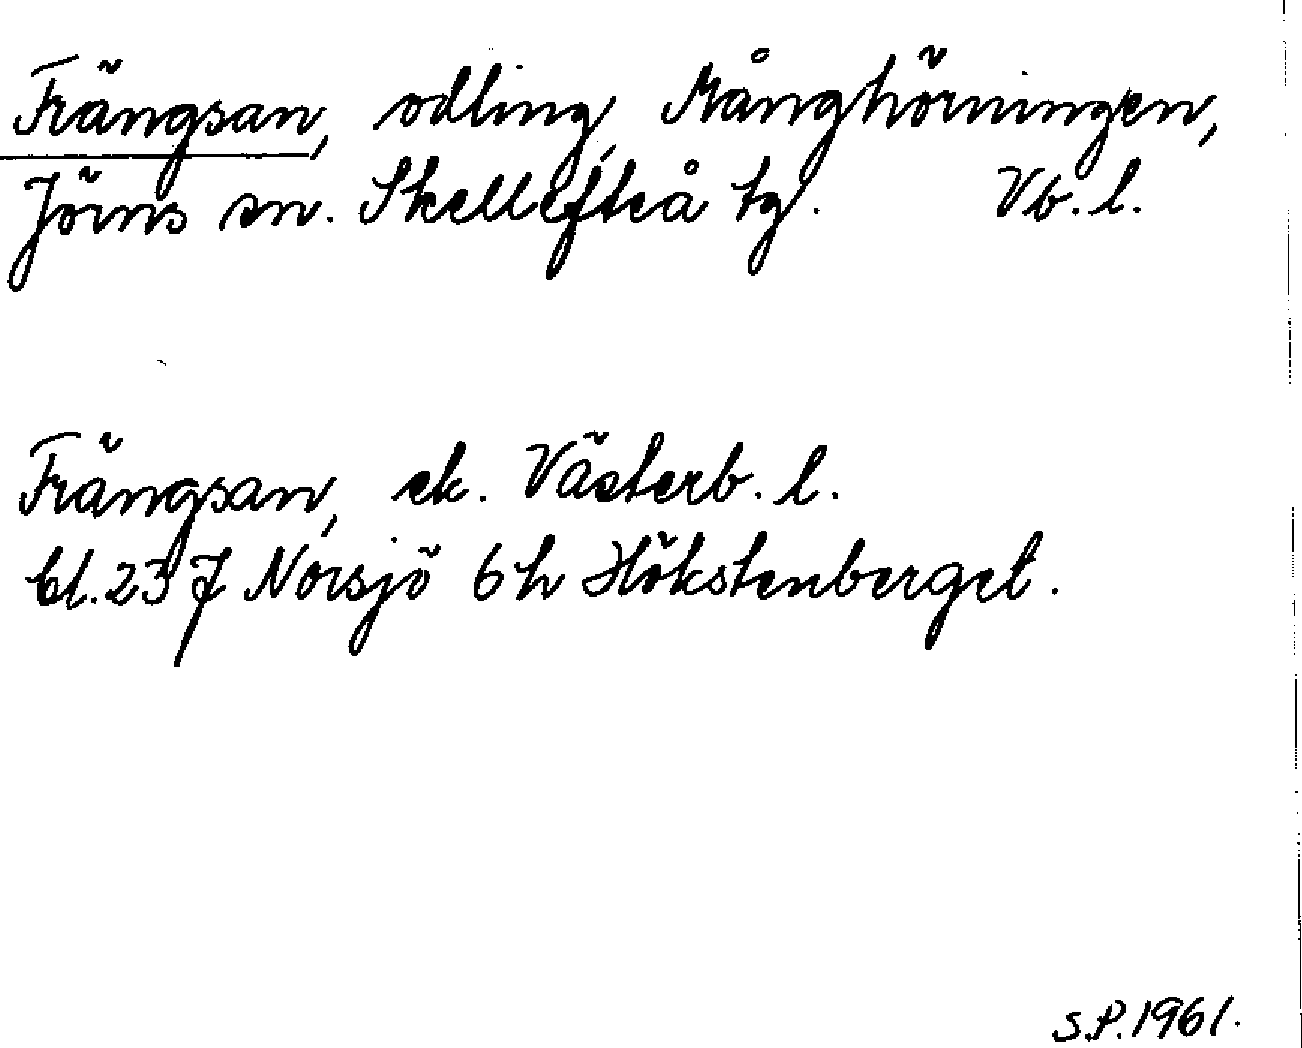 Frängsan, odling, Månghörningen,
Jörns sn. Skellefteå tg. Vb. l.
Frängsan, ek. Västerb. l.
bl. 23 J Norsjö 6 h Hökstenberget.
S.P. 1961.